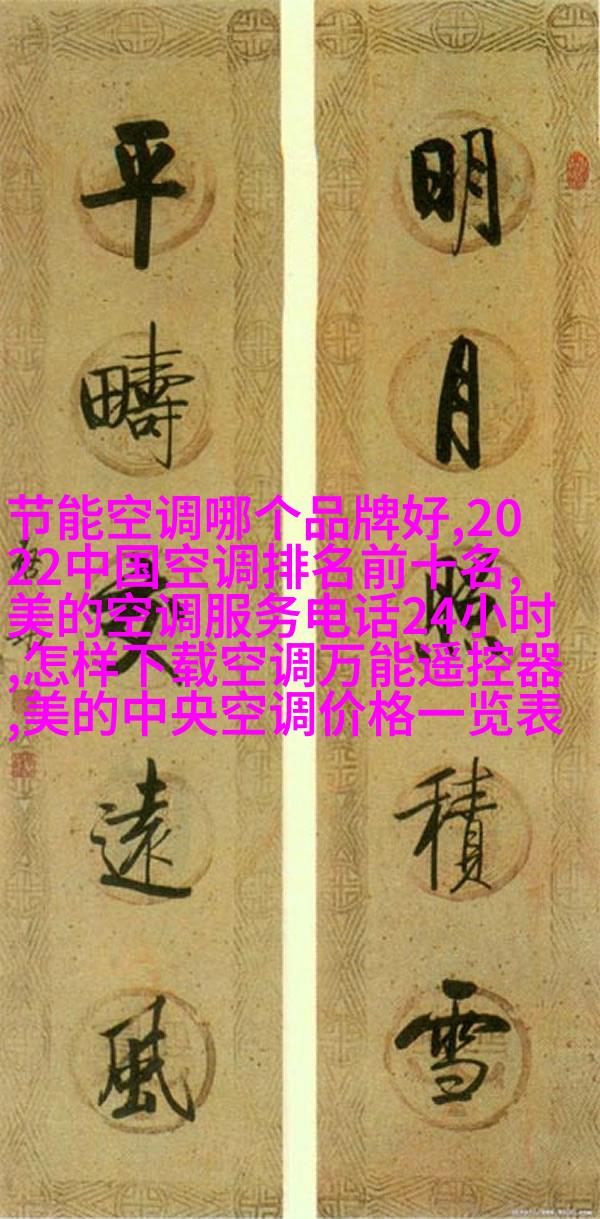 明月照積雪
平疇交遠風
节能空调哪个品牌好,20
22中国空调排名前十名,
美的空调服务电话24小时
,怎样下载空调万能遥控器
,美的中央空调价格一览表